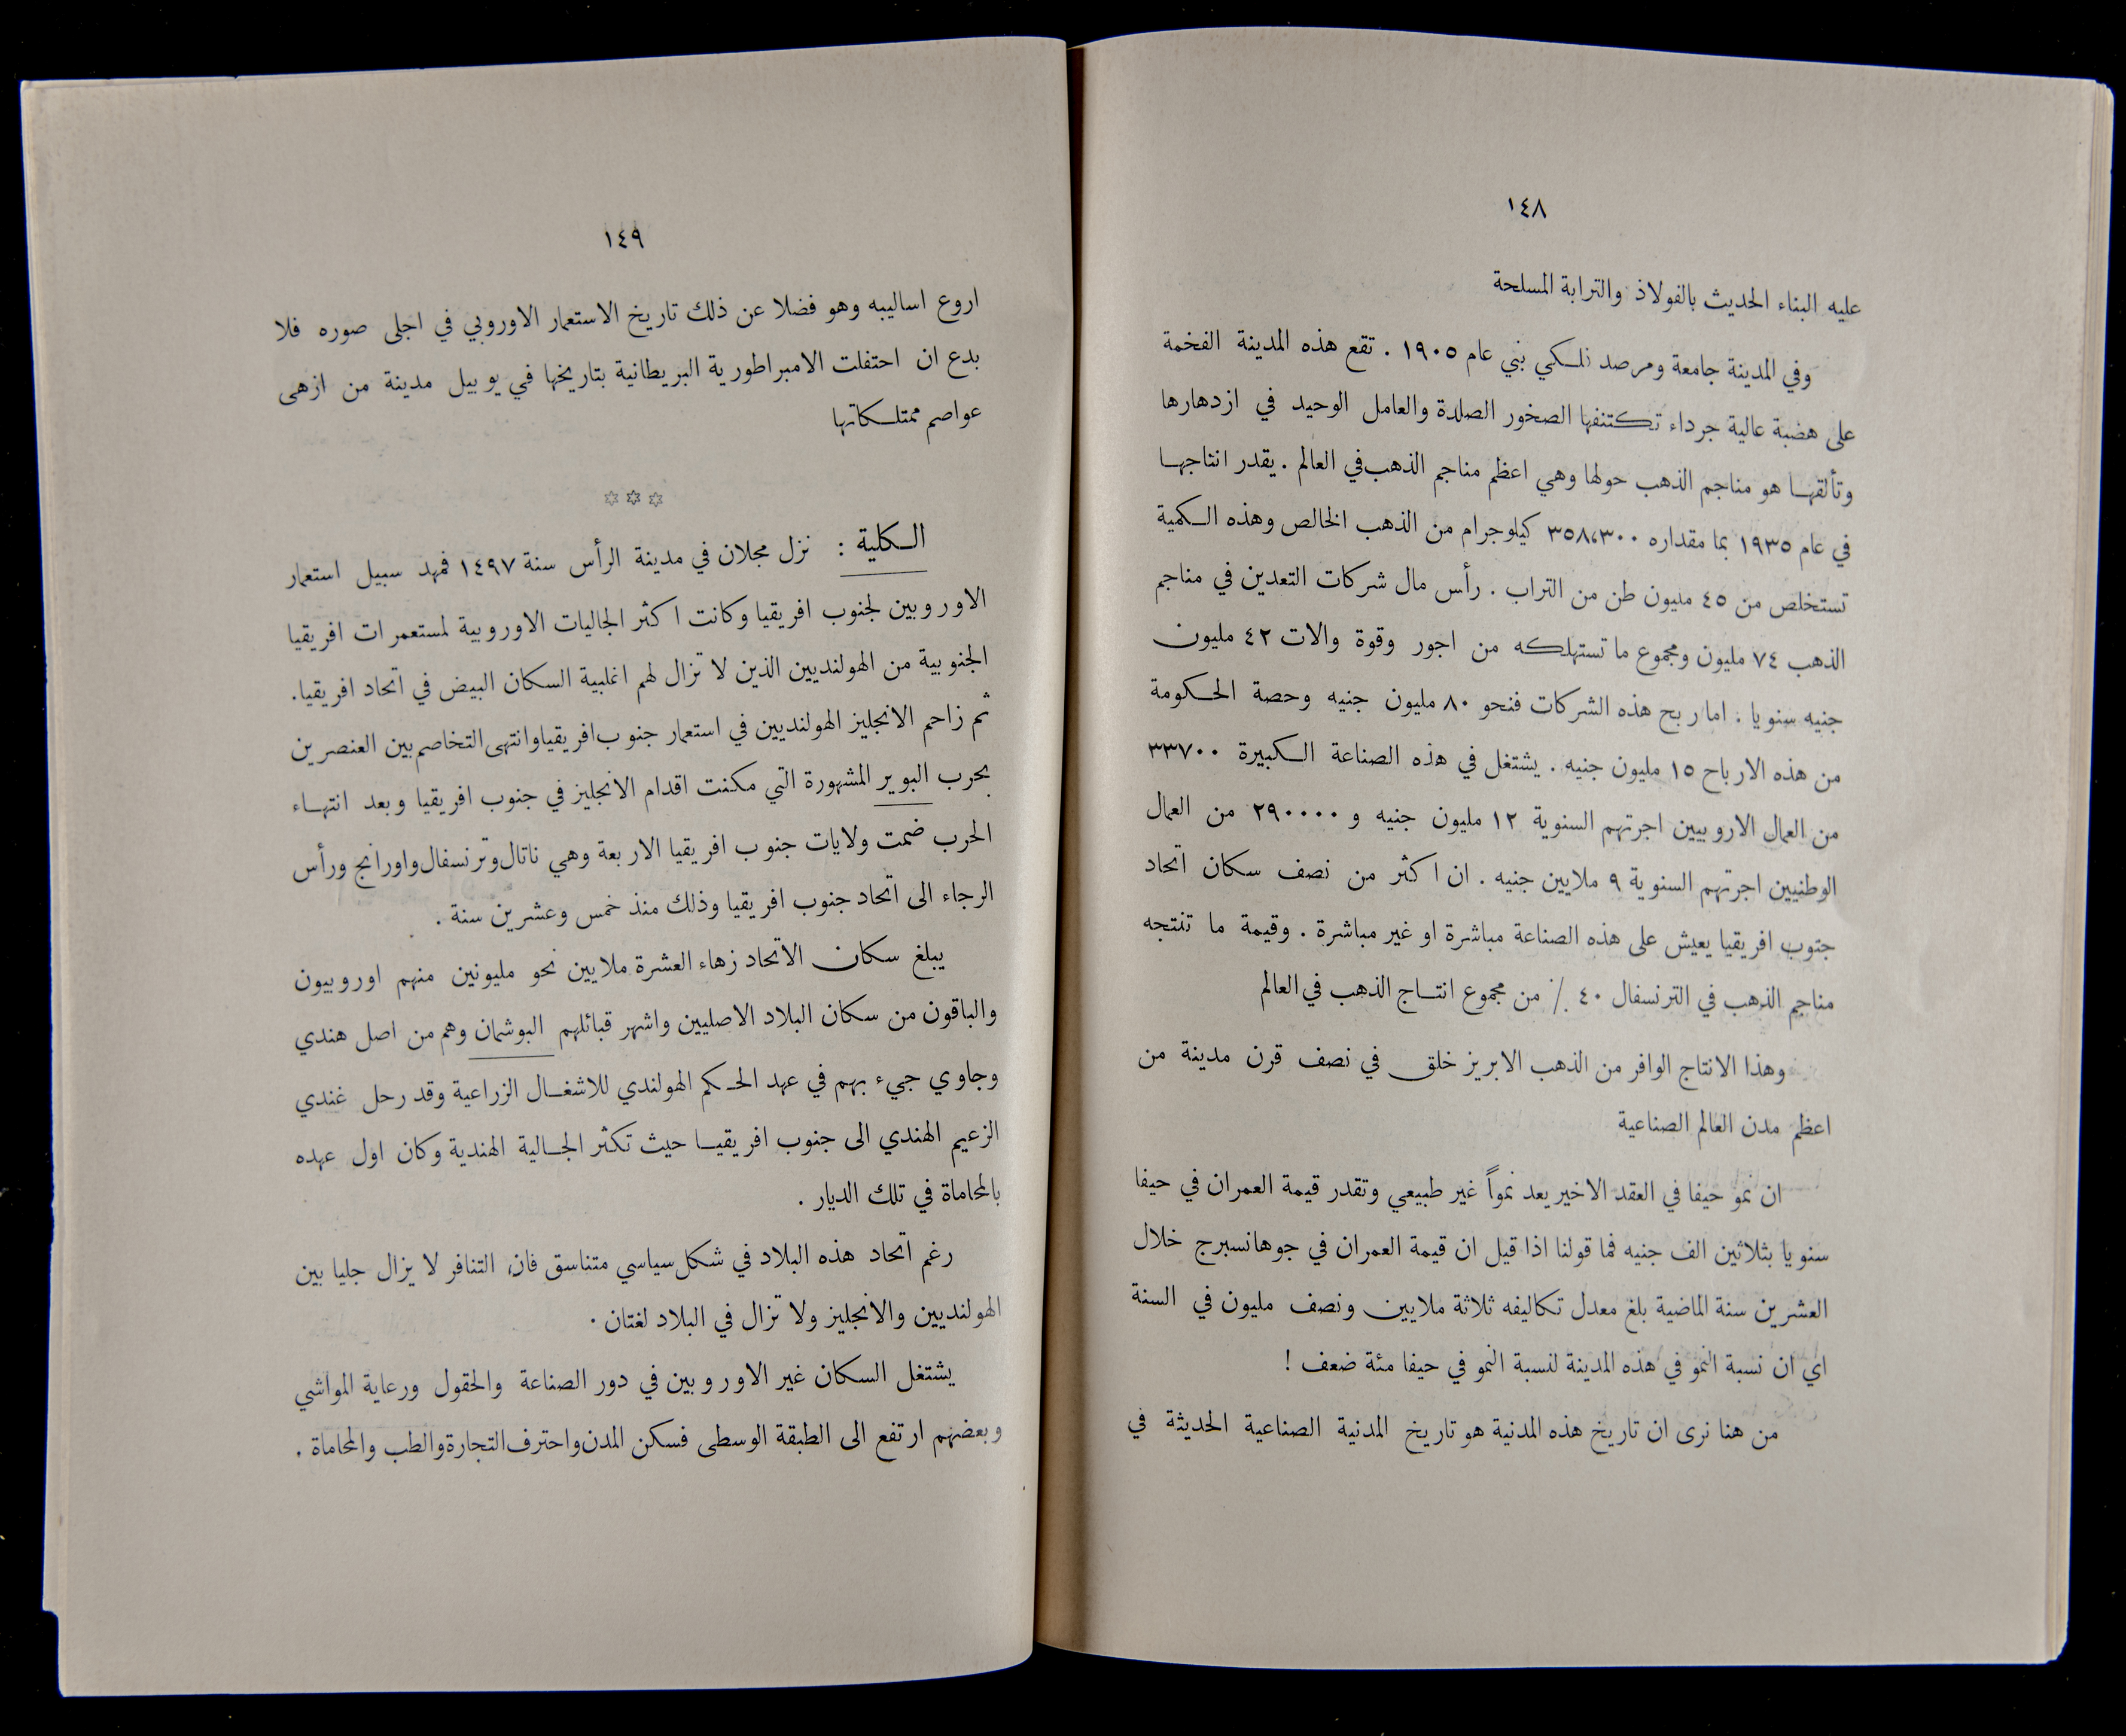 ١٤٨
عليه البناء الحديث بالفولاذ والترابة المسلحة
وفي المدينة جامعة ومرصد فلكي بني عام ١٩٠٥ . تقع هذه المدينة الفخمة
على هضبة عالية جرداء تكتنفها الصخور الصلدة والعامل الوحيد في ازدهارها
وتألقها هو مناجم الذهب حولها وهي اعظم مناجم الذهب في العالم . يقدر انتاجها
في عام ١٩٣٥ بما مقداره ٣٥٨،٣٠٠ كيلوجرام من الذهب الخالص وهذه الكمية
تستخلص من ٤٥ مليون طن من التراب . رأس مال شركات التعدين في مناجم
الذهب ٧٤ مليون ومجموع ما تستهلكه من اجور وقوة والات ٤٢ مليون
جنيه سنويا . اما ربح هذه الشركات فنحو ٨٠ مليون جنيه وحصة الحكومة
من هذه الارباح ١٥ مليون جنيه . يشتغل في هذه الصناعة الكبيرة ٣٣٧٠٠
من العمال الاروبيين اجرتهم السنوية ١٢ مليون جنيه و ٢٩٠٠٠٠ من العمال
الوطنيين اجرتهم السنوية ٩ ملايين جنيه . ان اكثر من نصف سكان اتحاد
جنوب افريقيا يعيش على هذه الصناعة مباشرة او غير مباشرة . وقيمة ما تنتجه
مناجم الذهب في الترنسفال ٤٠ ٪ من مجموع انتاج الذهب في العالم
وهذا الانتاج الوافر من الذهب الابريز خلق في نصف قرن مدينة من
اعظم مدن العالم الصناعية
ان نمو حيفا في العقد الاخير يعد نمواً غير طبيعي وتقدر قيمة العمران في حيفا
سنويا بثلاثين الف جنيه فما قولنا اذا قيل ان قيمة العمران في جوهانسبرج خلال
العشرين سنة الماضية بلغ معدل تكاليفه ثلاثة ملايين ونصف مليون في السنة
اي ان نسبة النمو في هذه المدينة لنسبة النمو في حيفا مئة ضعف !
من هنا نرى ان تاريخ هذه المدنية هو تاريخ المدنية الصناعية الحديثة في
١٤٩
اروع اساليبه وهو فضلا عن ذلك تاريخ الاستعمار الاوروبي في اجلى صوره فلا
بدع ان احتفلت الامبراطورية البريطانية بتاريخها في يوبيل مدينة من ازهى
عواصم ممتلكاتها
☆☆☆
الكلية : نزل مجلان في مدينة الرأس سنة ١٤٩٧ فمهد سبيل استعمار
الاوروبين لجنوب افريقيا وكانت اكثر الجاليات الاوروبية لمستعمرات افريقيا
الجنوبية من الهولنديين الذين لا تزال لهم اغلبية السكان البيض في اتحاد افريقيا.
ثم زاحم الانجليز الهولنديين في استعمار جنوب افريقيا وانتهى التخاصم بين العنصرين
بحرب البوير المشهورة التي مكنت اقدام الانجليز في جنوب افريقيا وبعد انتهاء
الحرب ضمت ولايات جنوب افريقيا الاربعة وهي ناتال وترنسفال واورانج ورأس
الرجاء الى اتحاد جنوب افريقيا وذلك منذ خمس وعشرين سنة .
يبلغ سكان الاتحاد زهاء العشرة ملايين نحو مليونين منهم اوروبيون
والباقون من سكان البلاد الاصليين واشهر قبائلهم البوشمان وهم من اصل هندي
وجاوي جيء بهم في عهد الحكم الهولندي للاشغال الزراعية وقد رحل غندي
الزعيم الهندي الى جنوب افريقيا حيث تكثر الجالية الهندية وكان اول عهده
بالمحاماة في تلك الديار .
رغم اتحاد هذه البلاد في شكل سياسي متناسق فان التنافر لا يزال جليا بين
الهولنديين والانجليز ولا تزال في البلاد لغتان .
يشتغل السكان غير الاوروبين في دور الصناعة والحقول ورعاية المواشي
وبعضهم ارتفع الى الطبقة الوسطى فسكن المدن واحترف التجارة والطب والمحاماة .